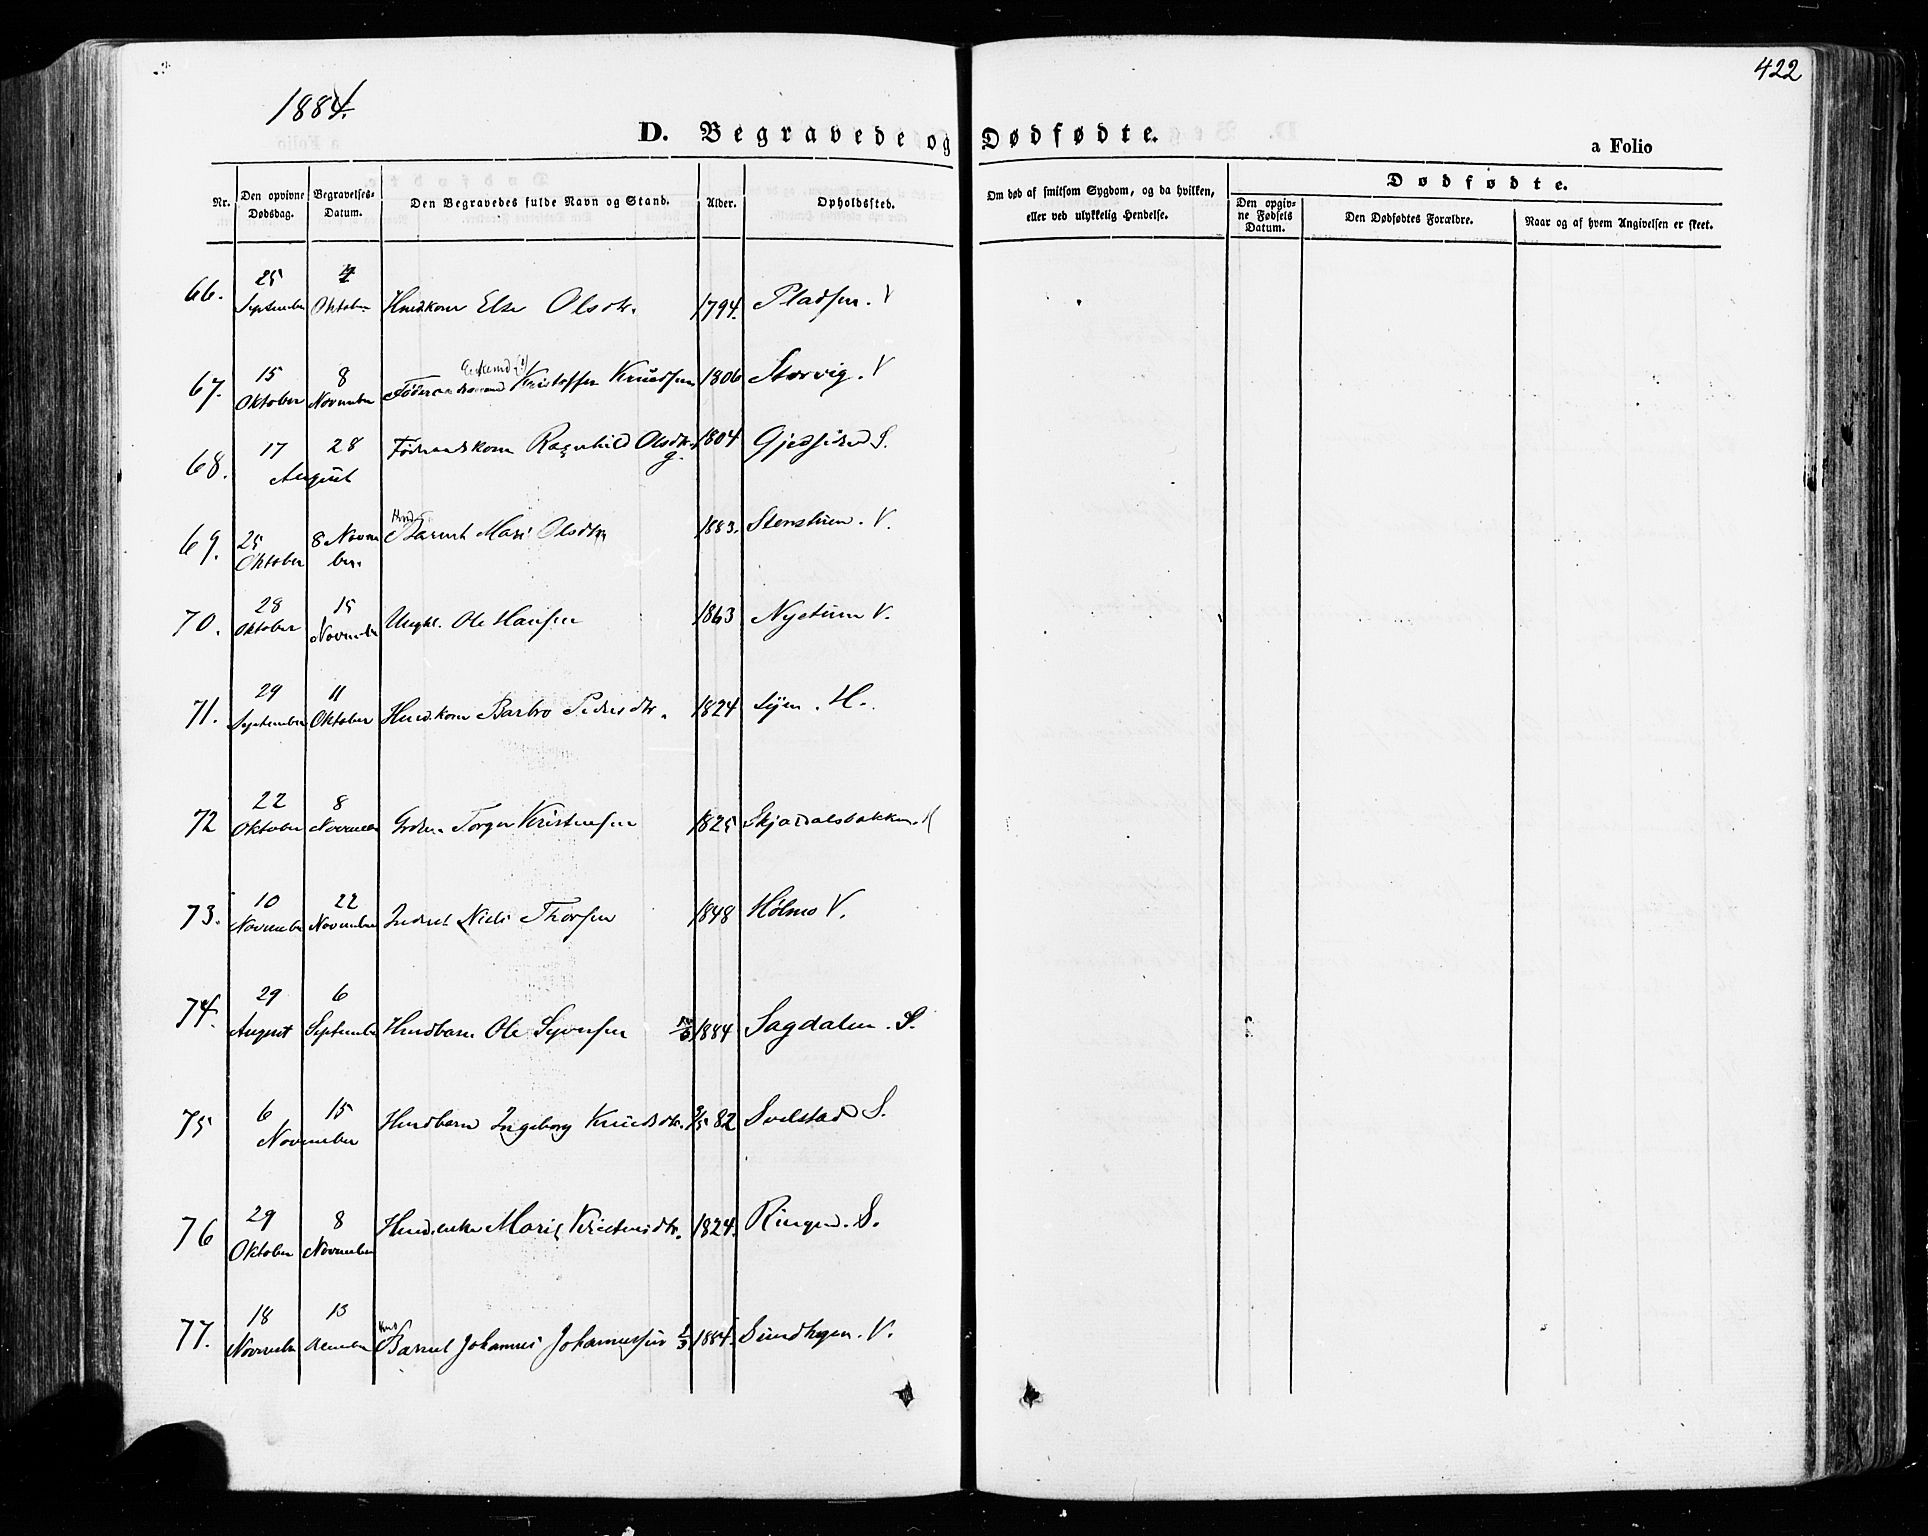 422
1884.
D. Begravede og Dødfødte.
a Folio
Nr. Den opgivne Dødsdag. Begravelses-Datum. Den Begravedes fulde Navn og Stand. Alder. Opholdssted. Om død af smitsom Sygdom, og da hvilken, eller ved ulykkelig Hendelse. Dødfødte.
Den opgivne Fødsels Datum. Den Dødfødtes Forældre. Naar og af hvem Angivelsen er skeet.
66. 25 September Oktober Husdkone Else Olsdtr. 1794. Pladsen. V
67. 15 Oktober 8 November Føderaadsmand Kristoffer Knudsen 1806 Storvig. V
68. 17 28 August Føderaadskone Ragnhild Olsdtr. 1804 Gjedsided S.
69. 25 Oktober 8 November Husd Barnet Mari Olsdtr 1883. Stenstuen. V.
70. 28 Oktober 15 November Ungkl. Ole Hansen 1863 Nystuen V.
71. 29 September 11 Oktober Husdkone Barbro Pedersdtr. 1824 H.
72 22 Oktober 8 November Grdm. Torger Kristensen 1825 Skjaldalsbakken. H
73. 10 November 22 November Inderst Niels Thorsen 1848 Hølmo V.
74. 29 August 6 September Husdbarn Ole Syversen 1884 Sagdalen. S.
75 6 15 November Husdbarn Ingeborg Knudsdtr. 9/5 82 Svelstad S.
76 29 Oktober 8 November Husd.enke Marit Kristensdtr. 1824. Ringen. S.
77. 18 November 13 December Husd Barnet Johannes Johannessen 1/3 1884. Sundhagen. V.